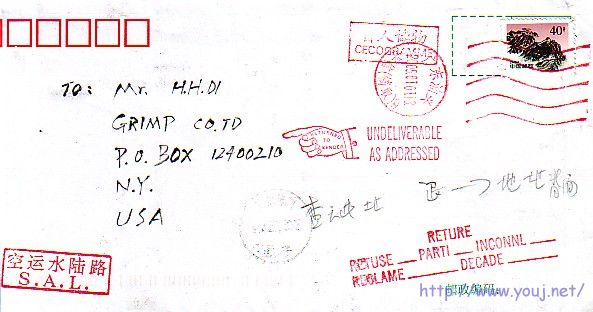 盲人读物
CECOGRAMME
40分
中国邮政
TO: Mr H.H.DI
GRIMP CO.TD
P.O. BOX 12400210
N.Y.
USA
RETURNED
TO
SENDER
UNDELIVERABLE
AS ADDRESSED
查无此址
RETURE
REFUSE PARTI INCONNL
REGLAME DECADE
空运水陆路
S.A.L.
邮政编码:
http://www.youj.net/